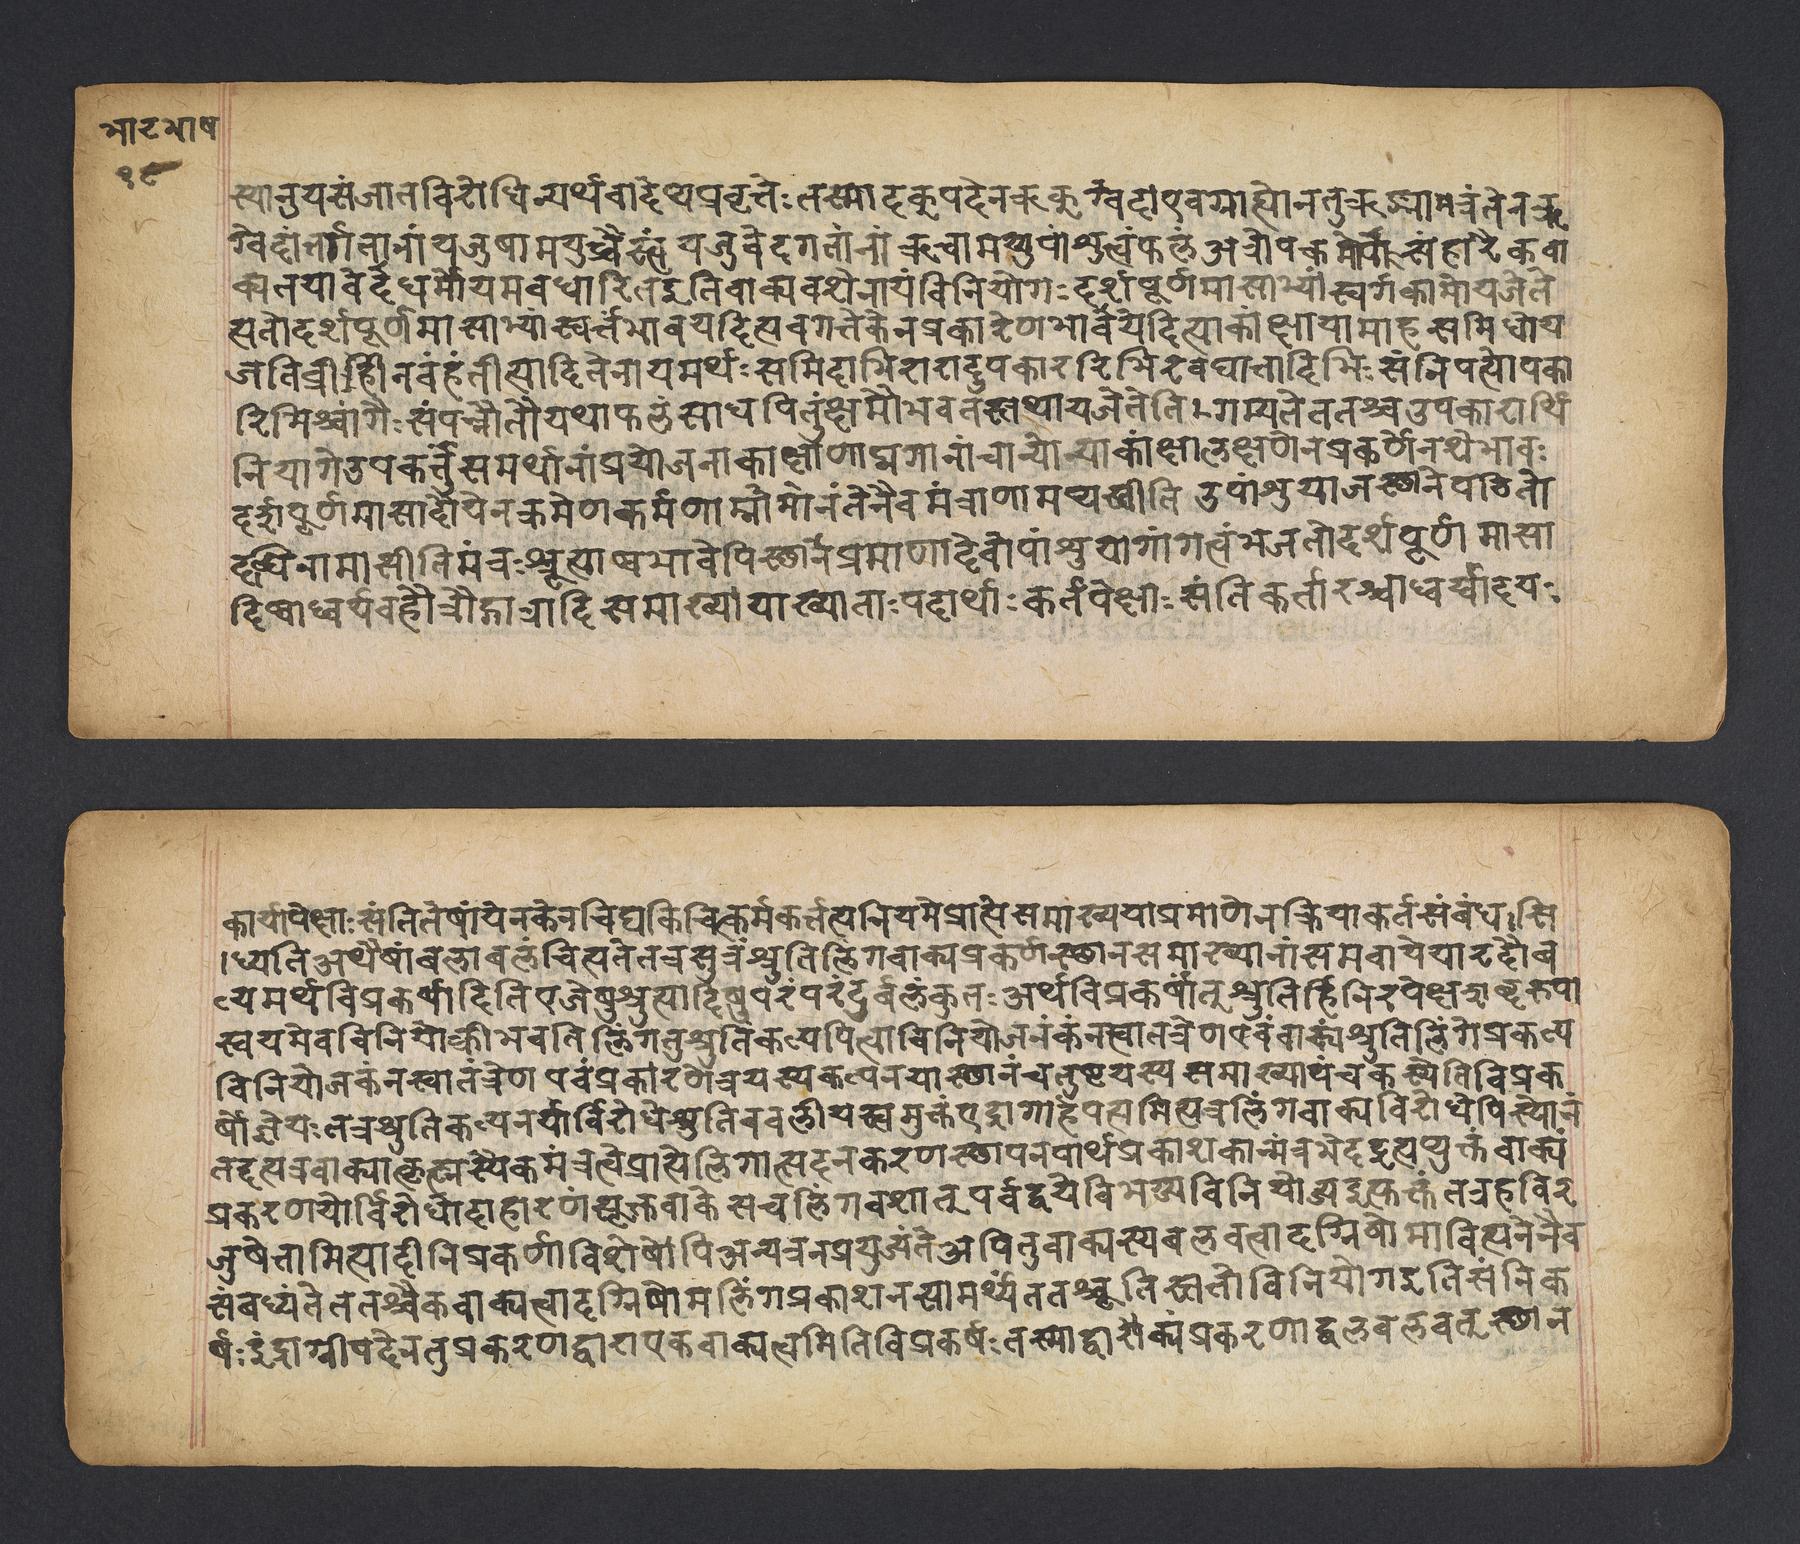 भाटभाष
१९
स्यानुयसंजातविरोधिन्यर्थवादेप्यप्रवृत्तेः तस्मादृकुपदेनऋकुग्वेदाएवग्राह्योनतुऋङ्मामत्रंतेनऋ
ग्वेदांतर्गतानांयजुषामप्युच्चैस्त्वं यजुर्वेदगतानां ऋचामप्युपांशुत्वंफलं अत्रोपक्रमोपसंहारैकवा
क्यतयावेदधर्मोयमवधारितइतिवाक्यवशेनायंविनियोगः दर्शपूर्णमासाभ्यांस्वर्गकामोयजेते
त्यतोदर्शपूर्णमासाभ्यांस्वर्गंभावयदित्यवगतेकेनप्रकारेणभावयेदित्याकांक्षायामाहसमिधोय
जतिव्रीहिनवंहंतीत्यादितेनायमर्थः समिदाभिरारादुपकाररिभिरवघातादिभिः संनिपत्योपका
रिभिश्चांगैः संपन्नौतौयथाफलंसाधयितुंक्षमौभवतस्तथायजेतेति गम्यतेततश्चउपकाराथिं
नियागेउपकर्तुंसमर्थानांप्रयोजनाकांक्षाणामगानांचान्योन्याकांक्षालक्षणेनप्रकर्णेनशेभावः
दर्शपूर्णमासादौयेनक्रमेणकर्मणामाम्नानंतेनैवमंत्राणामप्यस्तीति उपांशुयाजस्छानेपठितो
दब्धिनामासीतिमंत्रः श्रूत्याद्यभावेपिस्छानप्रमाणादेवोपांशुयागांगत्वंभजतोदर्शपूर्णमासा
दिष्वाध्वर्यवहौत्रौद्गात्रादिसमाख्यायाख्याताः पदार्थाः कर्तपेक्षाः संतिकर्तारश्चाध्वर्य्वादयः
कार्यापेक्षाः संतितेषांयेनकेनचिद्यकिंचित्कर्मकर्तत्यनियमेप्राप्तेसमाख्ययाप्रमाणेनक्रियाकर्तसंबंधःसि
ध्यतिअथैषांबलाबलंचित्यतेतत्रसुत्रंश्रुतिलिंगवाक्यप्रकर्णस्छानसमाख्यानांसमवायेपारदौब
ल्यमर्थविप्रकर्षादितिएजेषुश्रुत्यादिषुपरंपरंदुर्बलंकुतः अर्थविप्रकर्षातूश्रुतिर्हिनिरपेक्षत्वात्कृरुपा
स्वयमेवविनियोक्त्रीभवतिलिंगतुश्रुतिंकल्पयित्वाविनियोजनंकंनस्वातत्रेणएवंवाक्यंश्रुतिलिंगेप्रकल्प
विनियोजकंनस्वातंत्रेण एवंप्रकारणेत्रयस्यकल्पनयास्छानंचतुष्टयस्य समाख्यापंचकस्यैतिविप्रक
र्षोज्ञेयः तत्रश्रुतिकल्पनर्योर्विरोधेश्रुतिरबलीयस्त्वमुक्तंएंद्रागार्हपत्यमित्यत्रलिंगवाक्यविरोधेपिस्योनं
तइत्यत्रवाक्यात्कृत्स्नस्यैकमंत्रत्वेप्राप्तेलिंगात्सदनकरणस्छापनपार्थप्रकाशकान्मंत्रभेदइत्यप्युक्तंवाक्यं
प्रकरणयोर्विरोधोदाहारणंसूक्तवाकेसचलिंगवशात्पर्वद्वयेविभज्यविनियोज्यइत्युक्तंतत्रहविर
जुषेतामित्यादीनिप्रकर्णाविशेषोपिअन्यत्रनप्रयुज्यंतेअपितुवाक्यस्यबलवत्वादग्निषोमावित्यनेनैव
संबध्यंतेततश्चैकवाक्यत्वादग्निषोमलिंगप्रकाशनसामर्थ्यंततश्श्रूतिस्ततोविनियोगइतिसंनिक
र्षः इंद्राग्नीपदेनतुप्रकरणद्वाराएकवाक्यत्वमितिविप्रकर्षः तस्माद्वाक्यंप्रकरणाद्बलबलवत्स्छान